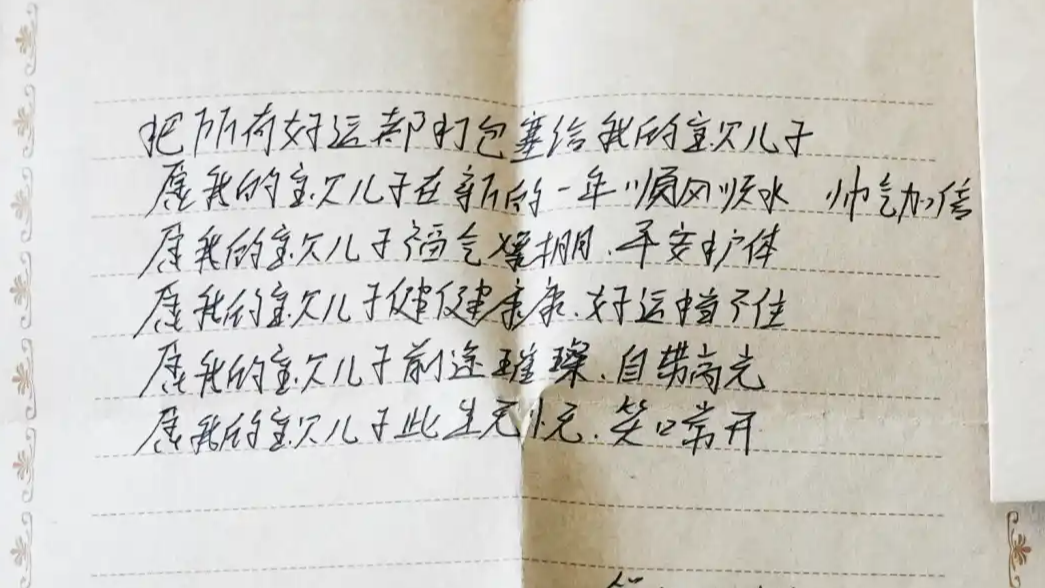 把所有好运都打包塞给我的宝贝儿子
愿我的宝贝儿子在新的一年顺风顺水 帅气加倍
愿我的宝贝儿子福气爆棚、平安护体
愿我的宝贝儿子健健康康、好运挡不住
愿我的宝贝儿子前途璀璨、自带高光
愿我的宝贝儿子此生无忧、笑口常开